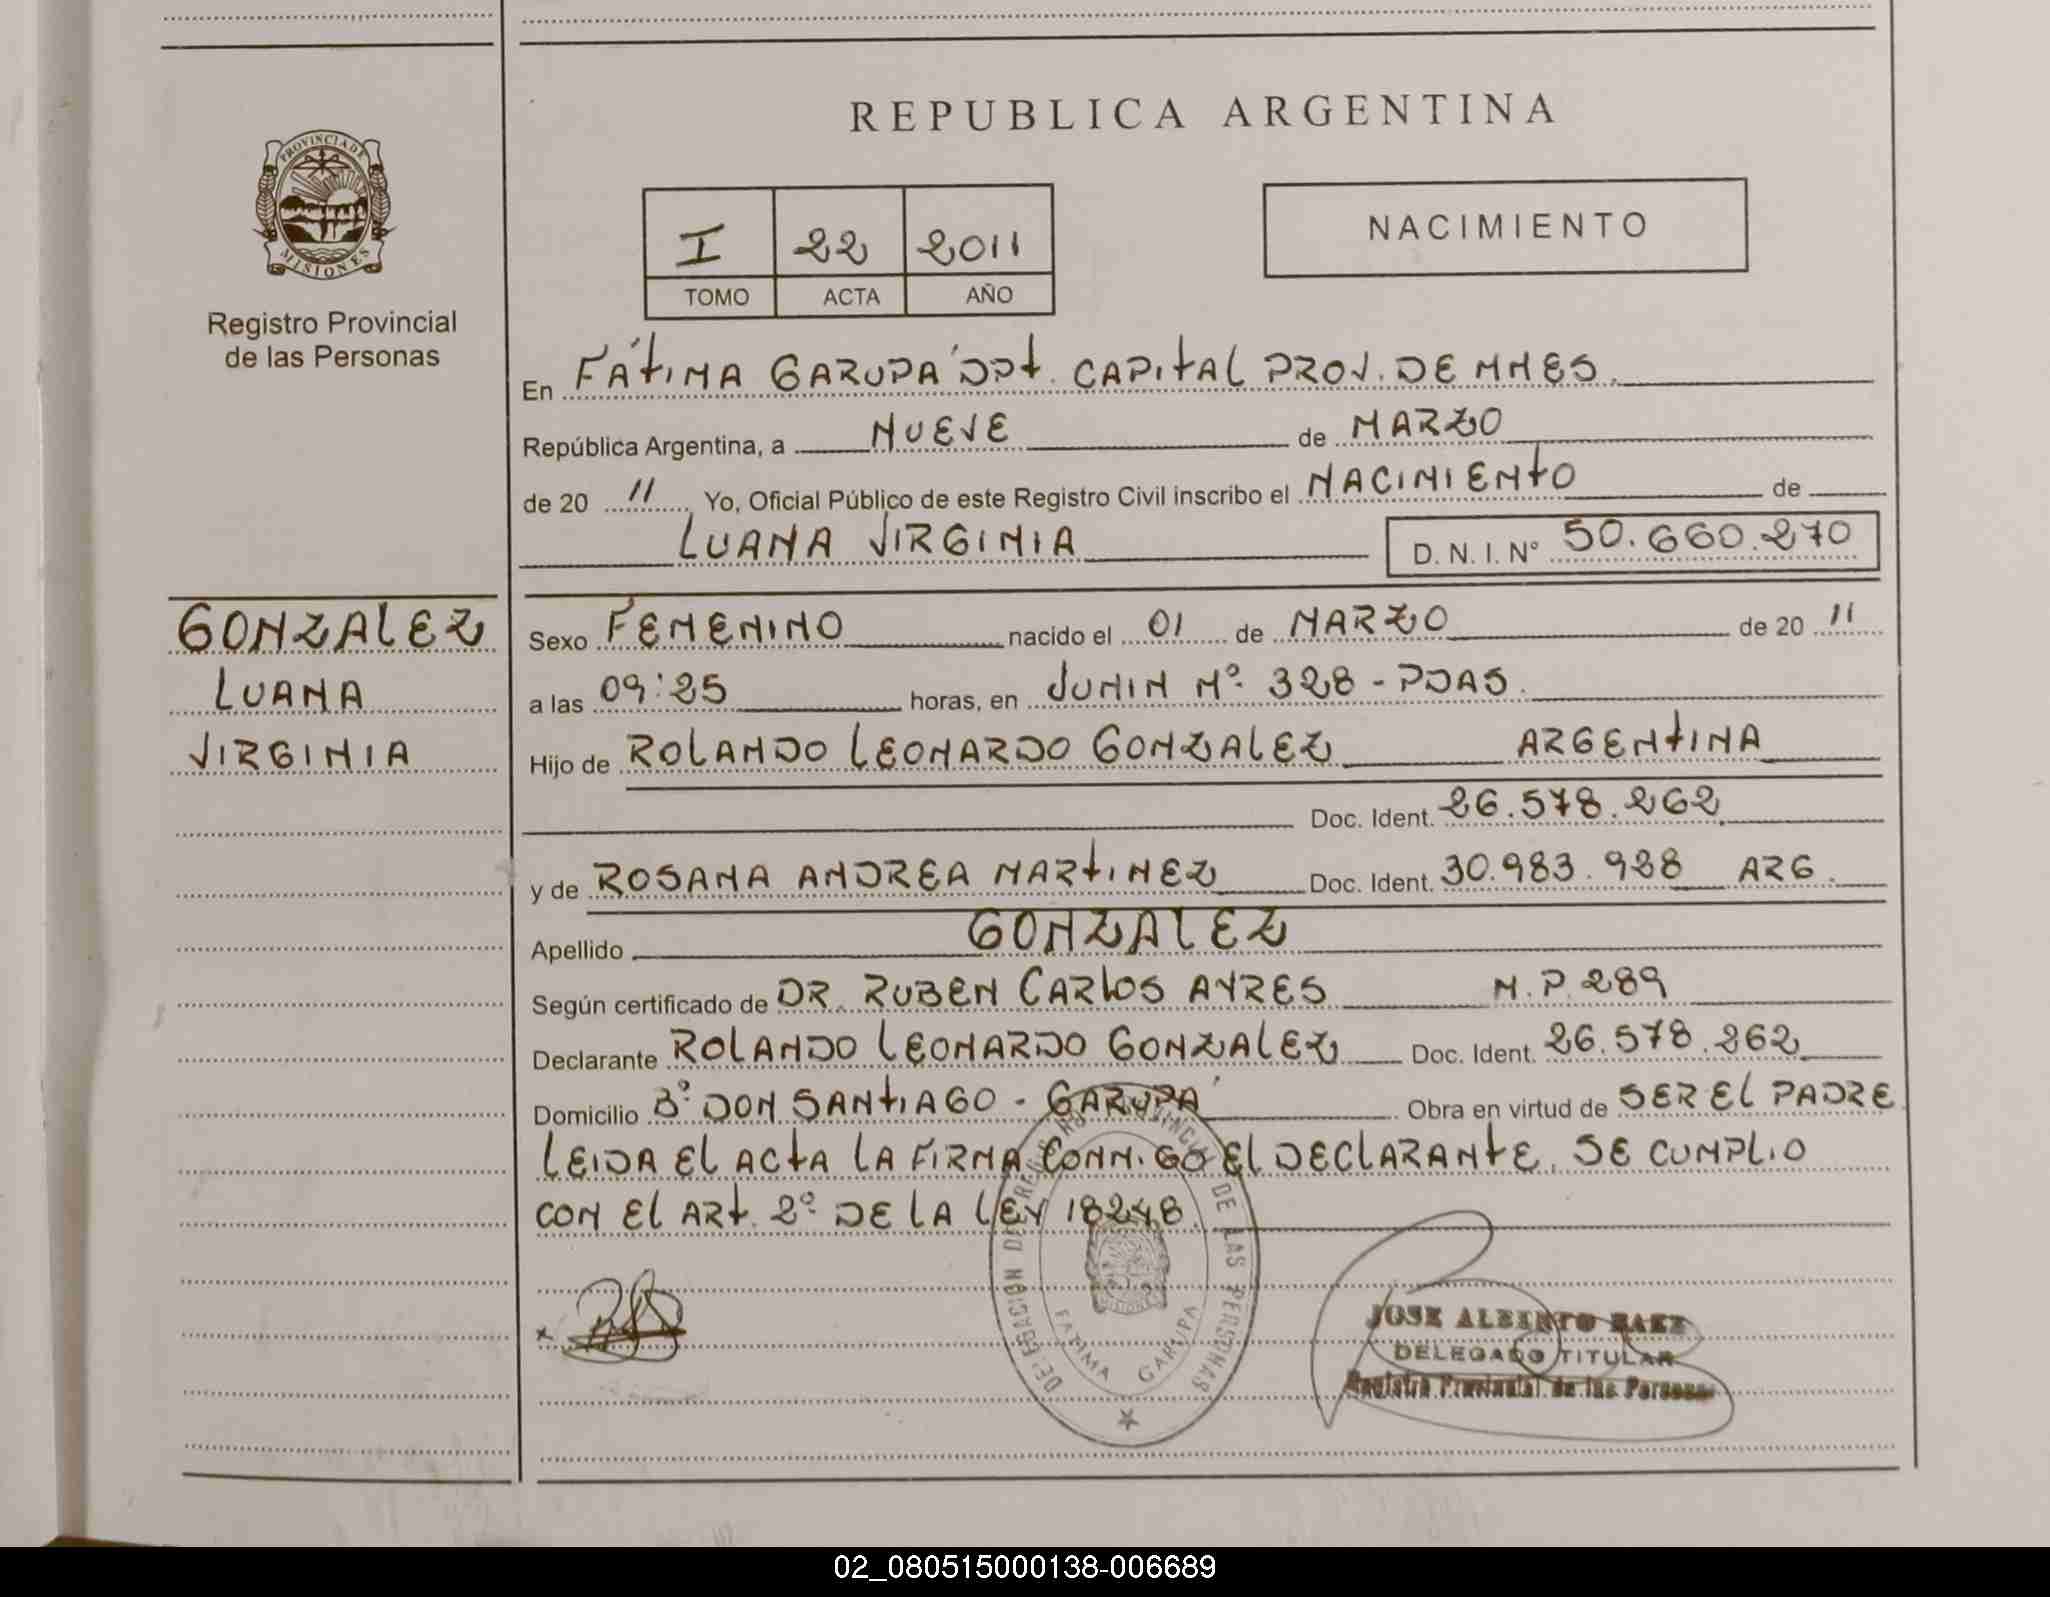 REPUBLICA ARGENTINA
PROVINCIA DE
MISIONES
Registro Provincial
de las Personas
I 22 2011
TOMO ACTA AÑO
NACIMIENTO
En FÁTIMA GARUPÁ DPT. CAPITAL PROV. DE MNES.
República Argentina, a NUEVE de MARZO
de 20 11 Yo, Oficial Público de este Registro Civil inscribo el NACIMIENTO de
LUANA VIRGINIA D. N. I. N° 50.660.270
GONZALEZ
LUANA
VIRGINIA
Sexo FEMENINO nacido el 01 de MARZO de 20 11
a las 09:25 horas, en JUNIN Nº 328 - PDAS.
Hijo de ROLANDO LEONARDO GONZALEZ ARGENTINA
Doc. Ident. 26.578.262
y de ROSANA ANDREA MARTINEZ Doc. Ident. 30.983.928 ARG.
Apellido GONZALEZ
Según certificado de DR. RUBEN CARLOS AYRES M.P. 289
Declarante ROLANDO LEONARDO GONZALEZ Doc. Ident. 26.578.262
Domicilio Bº DON SANTIAGO - GARUPÁ Obra en virtud de SER EL PADRE
LEIDA EL ACTA LA FIRMA CONMIGO EL DECLARANTE. SE CUMPLIO
CON EL ART. 2º DE LA LEY 18248.
DELEGACIÓN DE REG PROVINCIAL DE LAS PERSONAS
FATIMA GARUPA
JOSE ALBERTO BAEZ
DELEGADO TITULAR
Registro Provincial de las Personas
02_080515000138-006689